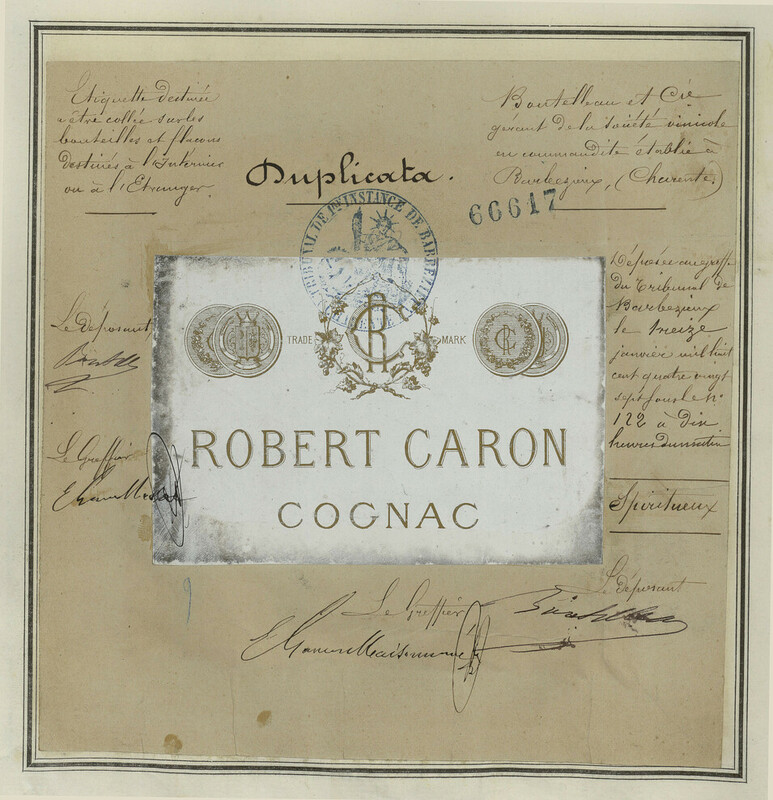 Etiquette destinée
a être collée sur les
bouteilles et flacons
destinés à l'Intérieur
ou à l'Etranger.
Duplicata.
Boutelleau et Cie
gérant de la Société vinicole
en commandite établie à
Barbezieux, (Charente)
66617
TRIBUNAL DE 1re INSTANCE DE BARBEZIEUX
CHARENTE
Le déposant
Le Greffier
TRADE
MARK
ROBERT CARON
COGNAC
Déposée au greffe
du Tribunal de
Barbezieux
le treize
janvier mil huit
cent quatre vingt
sept sous le No
122 à dix
heures du matin
Spiritueux
Le Greffier
Le déposant